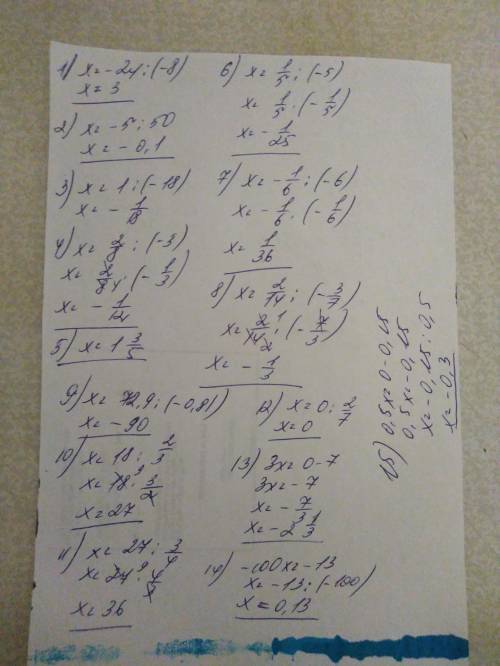 1) x=-24:(-8)
x=3
2) x=-5:50
x=-0,1
3) x=1:(-18)
x=-1/18
4) x=2/8:(-3)
x=2/84·(-1/3)
x=-1/12
5) x=1 3/5
6) x=1/5:(-5)
x=1/5·(-1/5)
x=-1/25
7) x=-1/6:(-6)
x=-1/6·(-1/6)
x=1/36
8) x=2/14:(-3/7)
x=2/14·(-7/3)
x=-1/3
9) x=72,9:(-0,81)
x=-90
10) x=18:2/3
x=18·3/2
x=27
11) x=27:3/4
x=27·4/3
x=36
12) x=0:2/7
x=0
13) 3x=0-7
3x=-7
x=-7/3
x=-2 1/3
14) -100x=-13
x=-13:(-100)
x=0,13
15) 0,5x=0-0,15
0,5x=-0,15
x=-0,15:0,5
x=-0,3